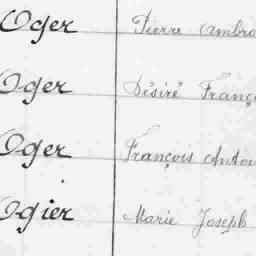 Oger Pierre Ambro
Oger Désiré Franç
Oger François Antoi
Ogier Marie Joseph